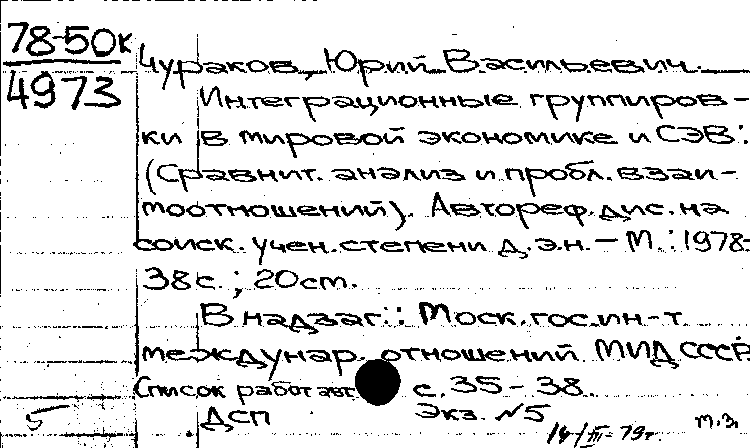 78-50к
4973
Чураков, Юрий Васильевич.
Интеграционные группиров-
ки в мировой экономике и СЭВ:
(Сравнит. анализ и пробл. взаи-
моотношений). Автореф. дис. на
соиск. учен. степени д.э.н. – М.: 1978.-
38 с.; 20 см.
В надзаг.: Моск. гос. ин-т
междунар. отношений МИД СССР.
Список работ авт. с. 35 - 38
5 ДСП Экз. №5
14/III-79г т.з.